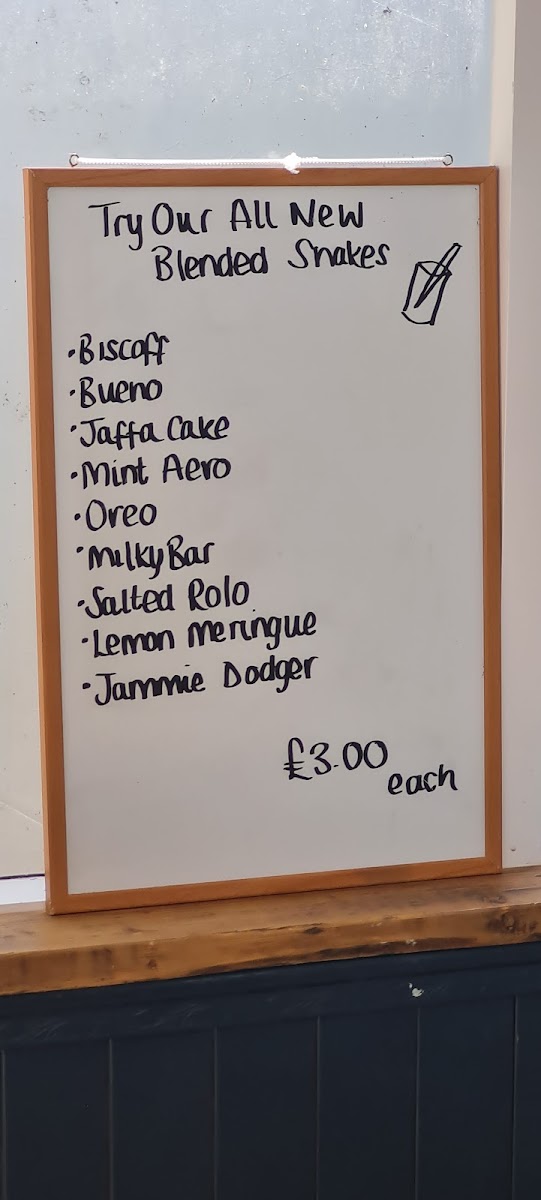 Try Our All New
Blended Shakes
• Biscoff
• Bueno
• Jaffa Cake
• Mint Aero
• Oreo
• Milky Bar
• Salted Rolo
• Lemon Meringue
• Jammie Dodger
£3.00
each